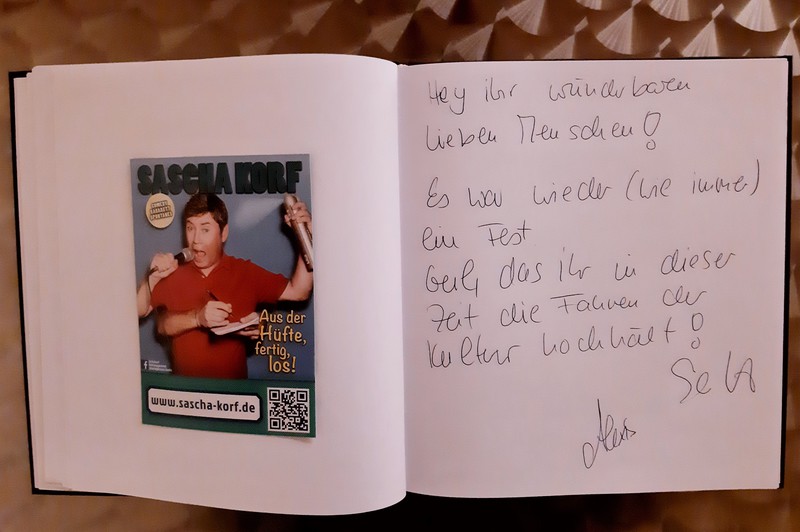 SASCHA KORF
COMEDY
KABARETT
SPONTANES
Aus der
Hüfte,
fertig,
los!
www.sascha-korf.de
Hey ihr wunderbaren
lieben Menschen!
Es war wieder (wie immer)
ein Fest
Geil, das ihr in dieser
Zeit die Fahnen der
Kultur hochhält!